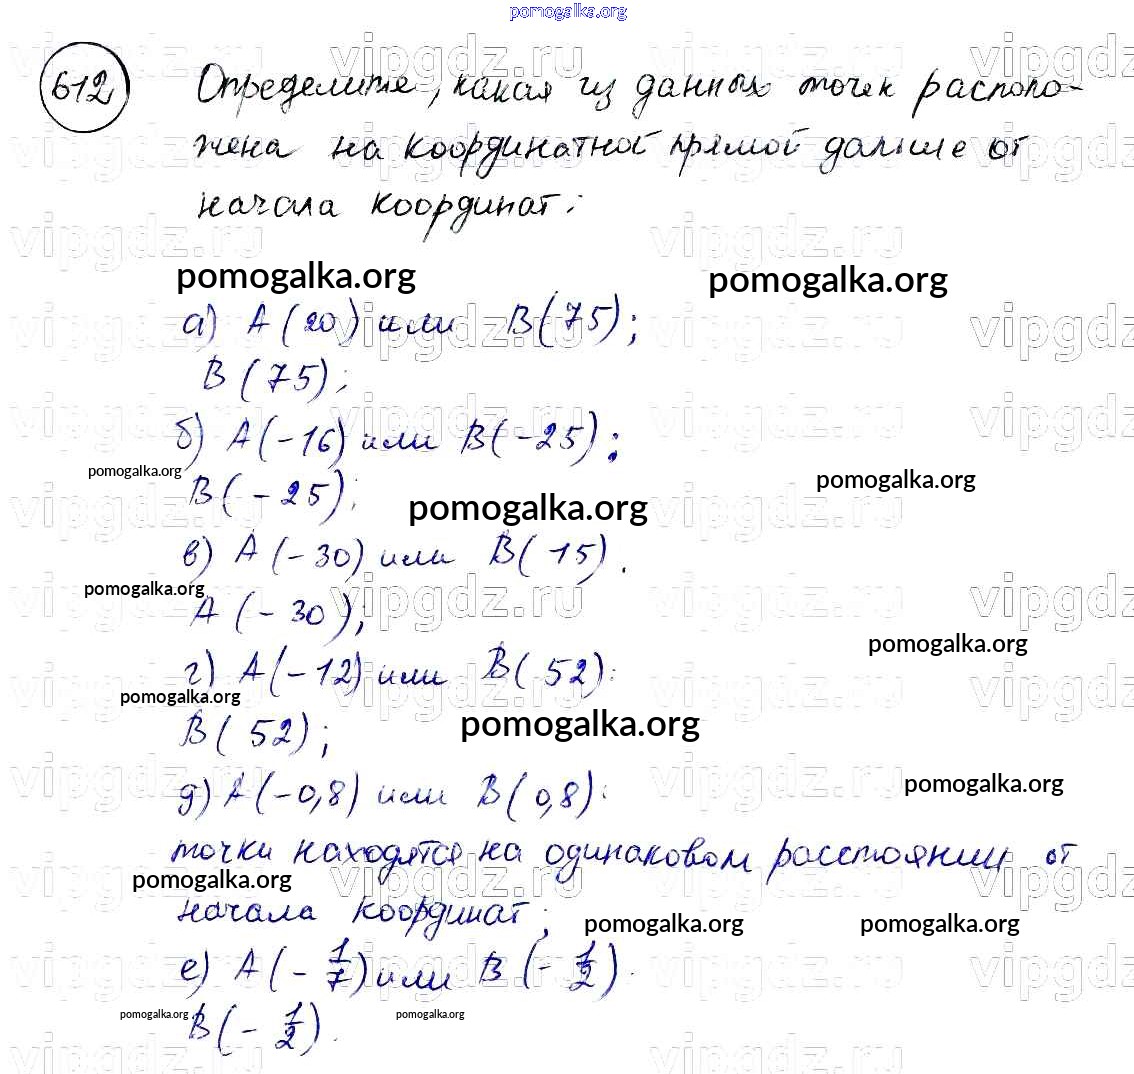 pomogalka.org
612 Определите, какая из данных точек располо-
жена на координатной прямой дальше от
начала координат:
pomogalka.org pomogalka.org
а) A(20) или B(75);
B(75);
б) A(-16) или B(-25);
pomogalka.org
B(-25); pomogalka.org
pomogalka.org
в) A(-30) или B(15).
pomogalka.org
A(-30);
pomogalka.org
г) A(-12) или B(52):
pomogalka.org
B(52); pomogalka.org
д) A(-0,8) или B(0,8):
pomogalka.org
точки находятся на одинаковом расстоянии от
pomogalka.org
начала координат;
pomogalka.org pomogalka.org
е) A(-1/7) или B(-1/2).
pomogalka.org pomogalka.org
B(-1/2).
vipgdz.ru